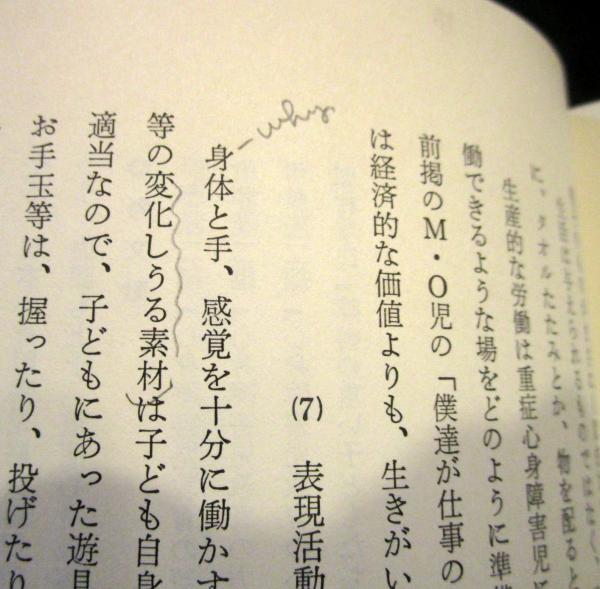 に、タオルたたみとか、物を配ると
生産的な労働は重症心身障害児に
働できるような場をどのように準
前掲のM・O児の「僕達が仕事の
は経済的な価値よりも、生きがい
(7) 表現活動
why
身体と手、感覚を十分に働かす
等の変化しうる素材は子ども自身
適当なので、子どもにあった遊具
お手玉等は、握ったり、投げたり